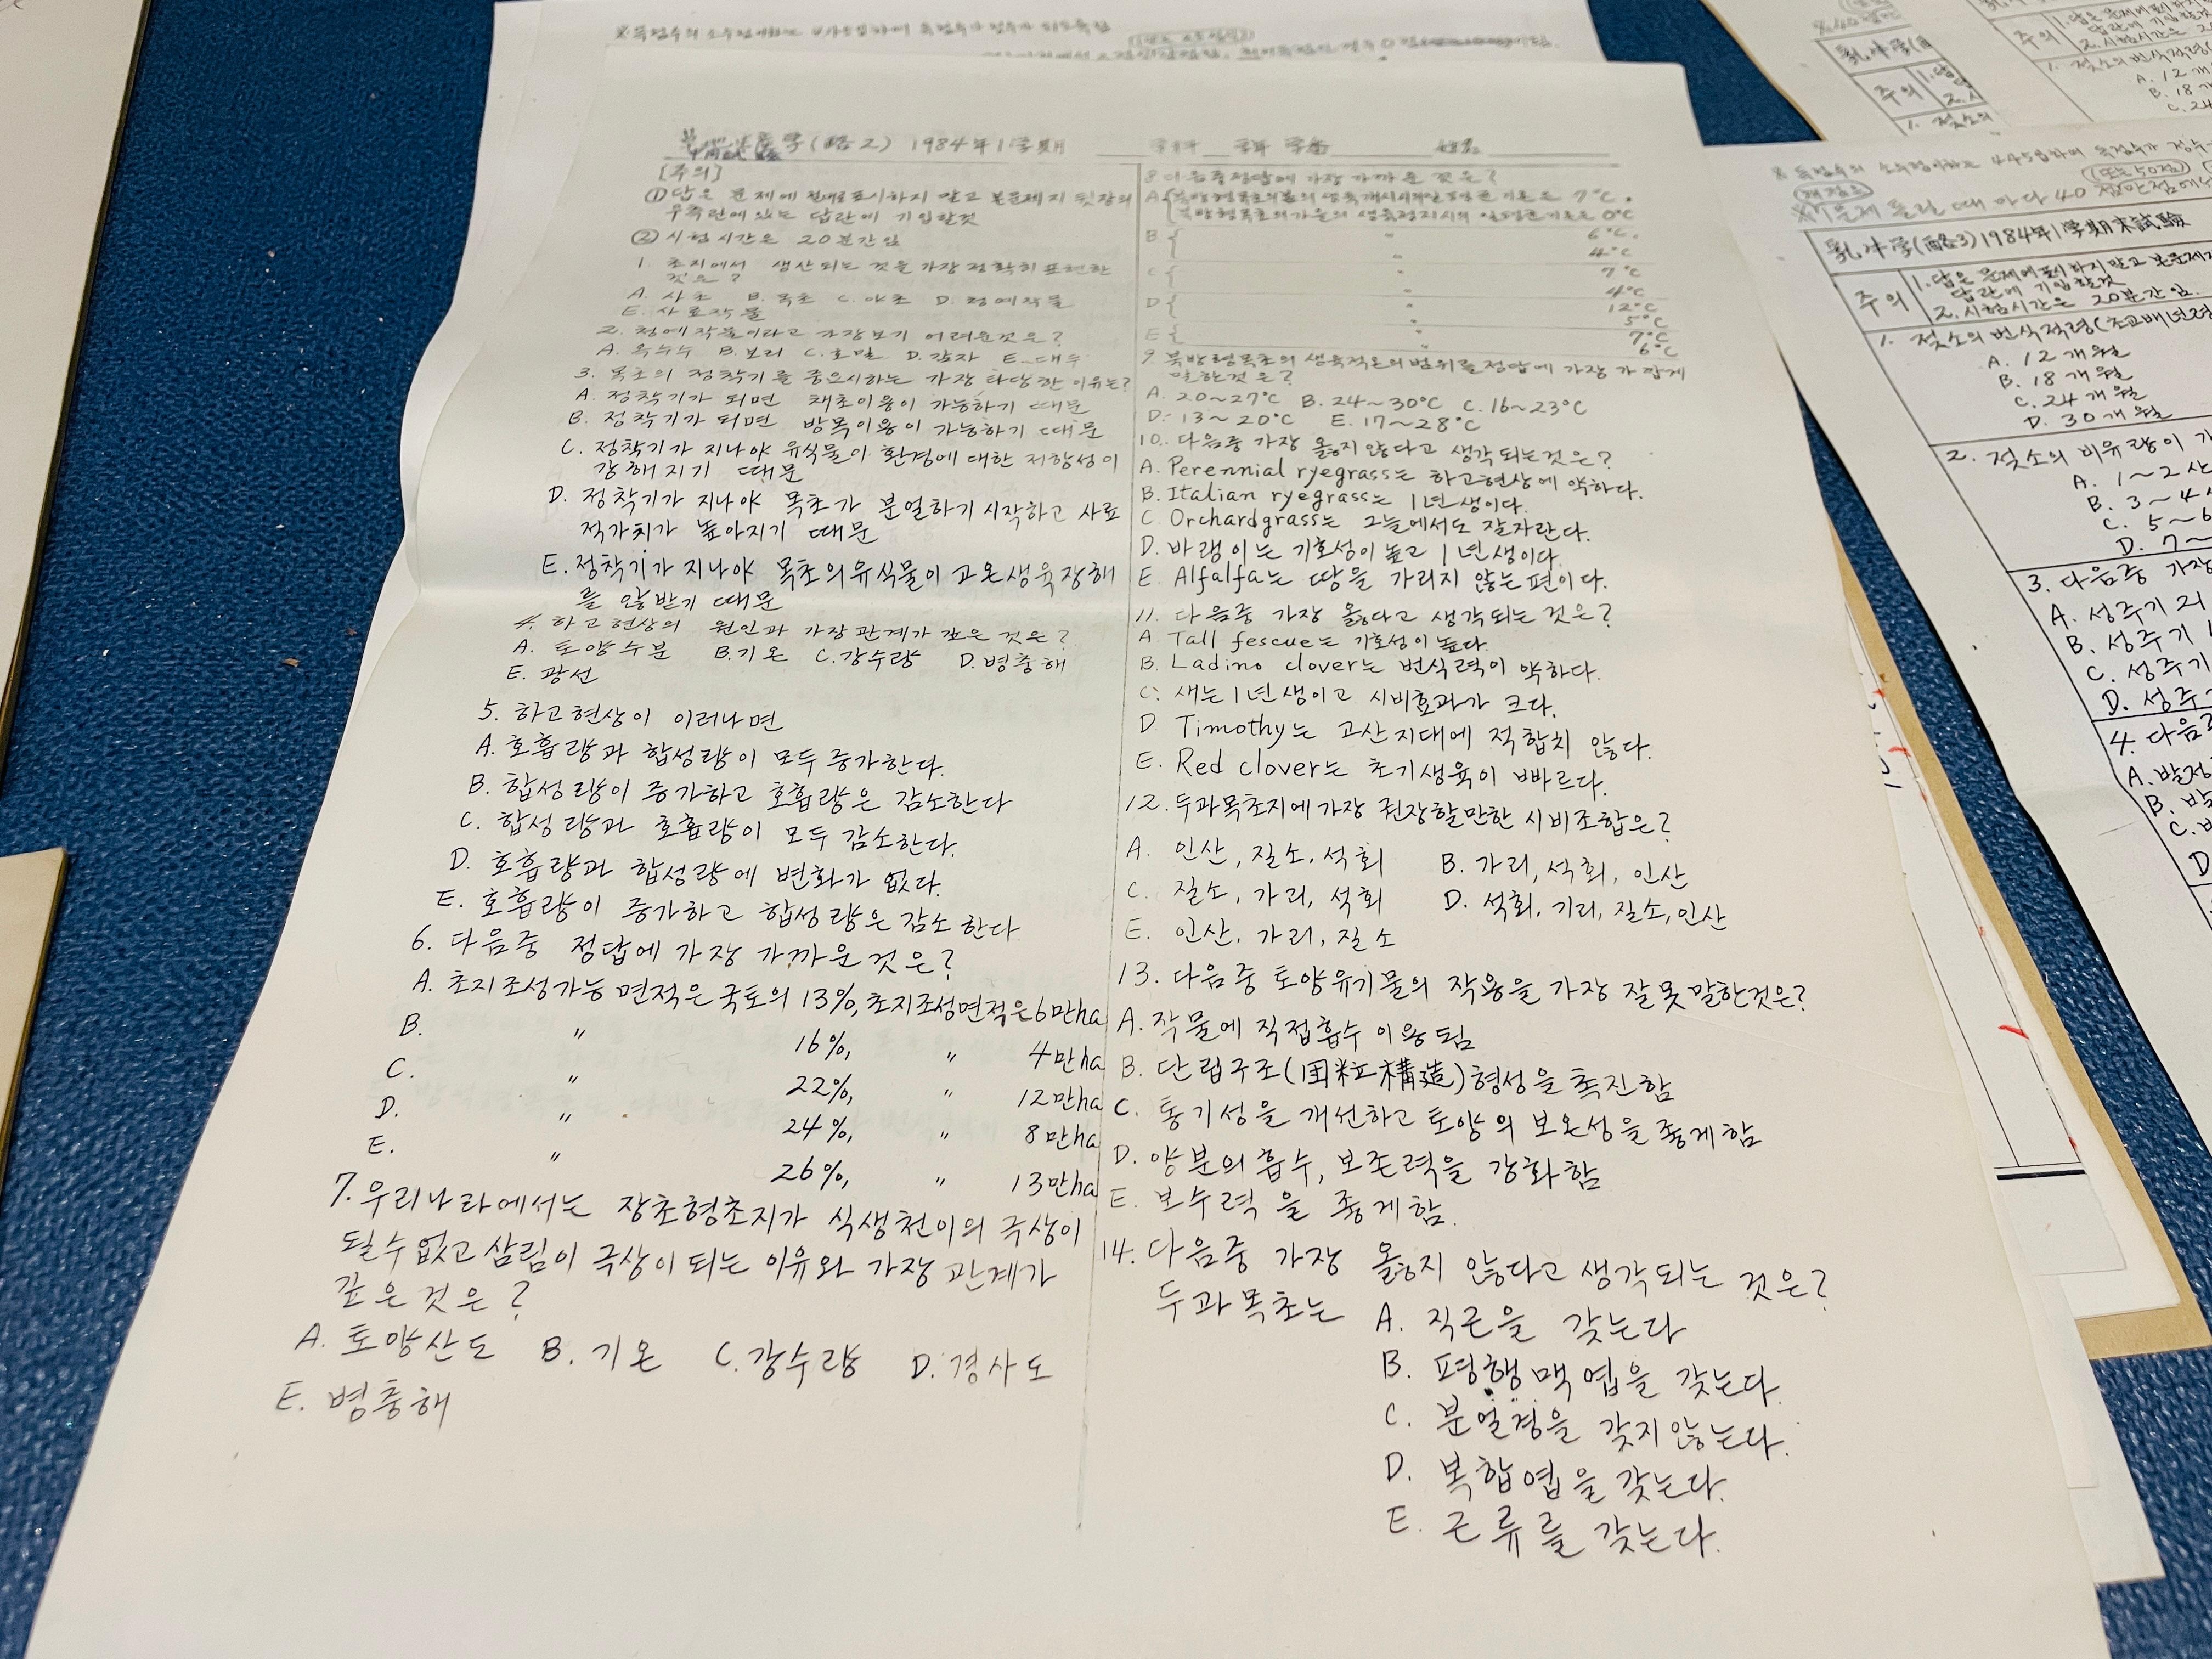 (酪2) 1984年1学期
[주의]
① 답은 문제에 표시하지 말고 본문제지 뒷장의
우측란에 있는 답란에 기입할것
② 시험시간은 20분간임
1. 초지에서 생산되는 것을 가장 정확히 표현한
것은?
A. 사초 B. 목초 C. 야초 D. 청예작물
E. 사료작물
2. 청예작물이라고 가장 보기 어려운것은?
A. 옥수수 B. 보리 C. 호밀 D. 감자 E. 대두
3. 목초의 정착기를 중요시하는 가장 타당한 이유는?
A. 정착기가 되면 채초이용이 가능하기 때문
B. 정착기가 되면 방목이용이 가능하기 때문
C. 정착기가 지나야 유식물이 환경에 대한 저항성이
강해지기 때문
D. 정착기가 지나야 목초가 분얼하기 시작하고 사료
적가치가 높아지기 때문
E. 정착기가 지나야 목초의 유식물이 고온생육장해
를 않받기 때문
4. 하고현상의 원인과 가장 관계가 깊은 것은?
A. 토양수분 B. 기온 C. 강수량 D. 병충해
E. 광선
5. 하고현상이 이러나면
A. 호흡량과 합성량이 모두 증가한다.
B. 합성량이 증가하고 호흡량은 감소한다
C. 합성량과 호흡량이 모두 감소한다.
D. 호흡량과 합성량에 변화가 없다.
E. 호흡량이 증가하고 합성량은 감소한다
6. 다음중 정답에 가장 가까운 것은?
A. 초지조성가능 면적은 국토의 13%, 초지조성면적은 6만ha
B. 〃 16%, 〃 4만ha
C. 〃 22%, 〃 12만ha
D. 〃 24%, 〃 8만ha
E. 〃 26%, 〃 13만ha
7. 우리나라에서는 장초형초지가 식생천이의 극상이
될수 없고 삼림이 극상이 되는 이유와 가장 관계가
깊은것은?
A. 토양산도 B. 기온 C. 강수량 D. 경사도
E. 병충해
8. 다음중정답에 가장 가까운 것은?
A { 7°C.
0°C
B { 〃 6°C.
4°C
C { 〃 7°C
4°C
D { 〃 12°C
5°C
E { 〃 7°C
6°C
9. 북방형목초의 생육적온의 범위를 정답에 가장 가깝게
말한것은?
A. 20~27°C B. 24~30°C C. 16~23°C
D. 13~20°C E. 17~28°C
10. 다음중 가장 옳지않다고 생각되는것은?
A. Perennial ryegrass는 하고현상에 약하다.
B. Italian ryegrass는 1년생이다.
C. Orchardgrass는 그늘에서도 잘자란다.
D. 바랭이는 기호성이 높고 1년생이다.
E. Alfalfa는 땅을 가리지 않는편이다.
11. 다음중 가장 옳다고 생각되는 것은?
A. Tall fescue는 기호성이 높다.
B. Ladino clover는 번식력이 약하다.
C. 새는 1년생이고 시비효과가 크다.
D. Timothy는 고산지대에 적합치 않다.
E. Red clover는 초기생육이 빠르다.
12. 두과목초지에 가장 권장할만한 시비조합은?
A. 인산, 질소, 석회 B. 가리, 석회, 인산
C. 질소, 가리, 석회 D. 석회, 가리, 질소, 인산
E. 인산, 가리, 질소
13. 다음중 토양유기물의 작용을 가장 잘못 말한것은?
A. 작물에 직접흡수 이용됨
B. 단립구조(団粒構造)형성을 촉진함
C. 통기성을 개선하고 토양의 보온성을 좋게함
D. 양분의 흡수, 보존력을 강화함
E. 보수력을 좋게함.
14. 다음중 가장 옳지 않다고 생각되는 것은?
두과목초는 A. 직근을 갖는다
B. 평행맥엽을 갖는다.
C. 분얼경을 갖지않는다.
D. 복합엽을 갖는다.
E. 근류를 갖는다.
문제 틀릴 때 마다 40
乳牛学(酪3) 1984年1学期末試験
주의
1. 답은 문제에 표시하지말고 본문제
답란에 기입할것
2. 시험시간은 20분간임.
1. 젖소의 번식적령(초교배년령
A. 12개월
B. 18개월
C. 24개월
D. 30개월
2. 젖소의 비유량이 가
A. 1~2산
B. 3~4
C. 5~6
D. 7~
3. 다음중 가장
A. 성주기 21
B. 성주기
C. 성주기
D. 성주
4. 다음
A. 발정
B.
C.
D